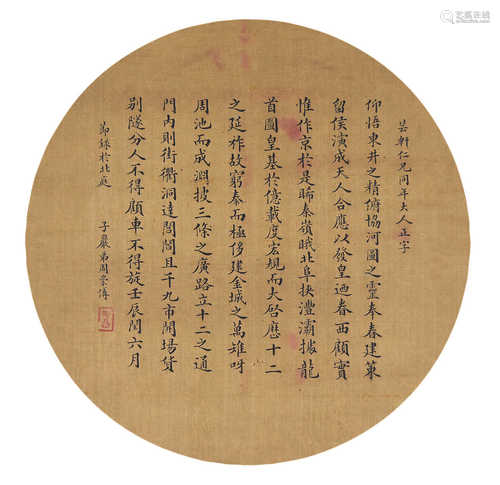 芸軒仁兄同年大人正字
仰悟東井之精俯協河圖之靈奉春建策
留侯演成天人合應以發皇迺眷西顧實
惟作京於是睎秦嶺睋北阜挾灃灞據龍
首圖皇基於億載度宏規而大啓應十二
之延祚故窮泰而極侈建金城之萬雉呀
周池而成淵披三條之廣路立十二之通
門內則街衢洞達閭閻且千九市開場貨
別隧分人不得顧車不得旋壬辰閏六月
節錄於北庭 子嚴弟周崇傅